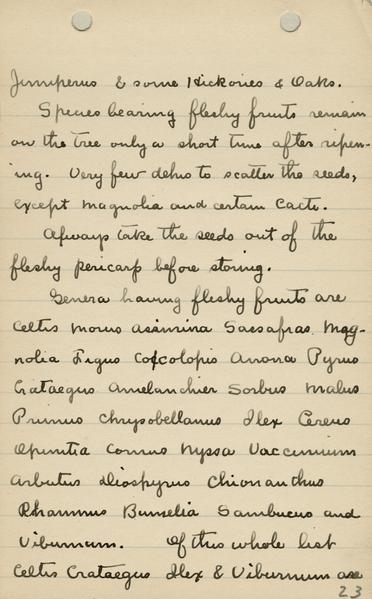 Juniperus & some Hickories & Oaks.
Species bearing fleshy fruits remain
on the tree only a short time after ripen-
ing. Very few dehis to scatter the seeds,
except Magnolia and certain Cacti.
Always take the seeds out of the
fleshy pericarp before storing.
Genera having fleshy fruits are
Celtis Morus Asimina Sassafras Mag-
nolia Ficus Coccolopis Anona Pyrus
Crataegus Amelanchier Sorbus Malus
Prunus Chrysobellanus Ilex Cereus
Opuntia Cornus Nyssa Vaccinium
Arbutus Diospyrus Chionanthus
Rhamnus Bumelia Sambucus and
Viburnum. Of this whole list
Celtis Crataegus Ilex & Viburnum are
23